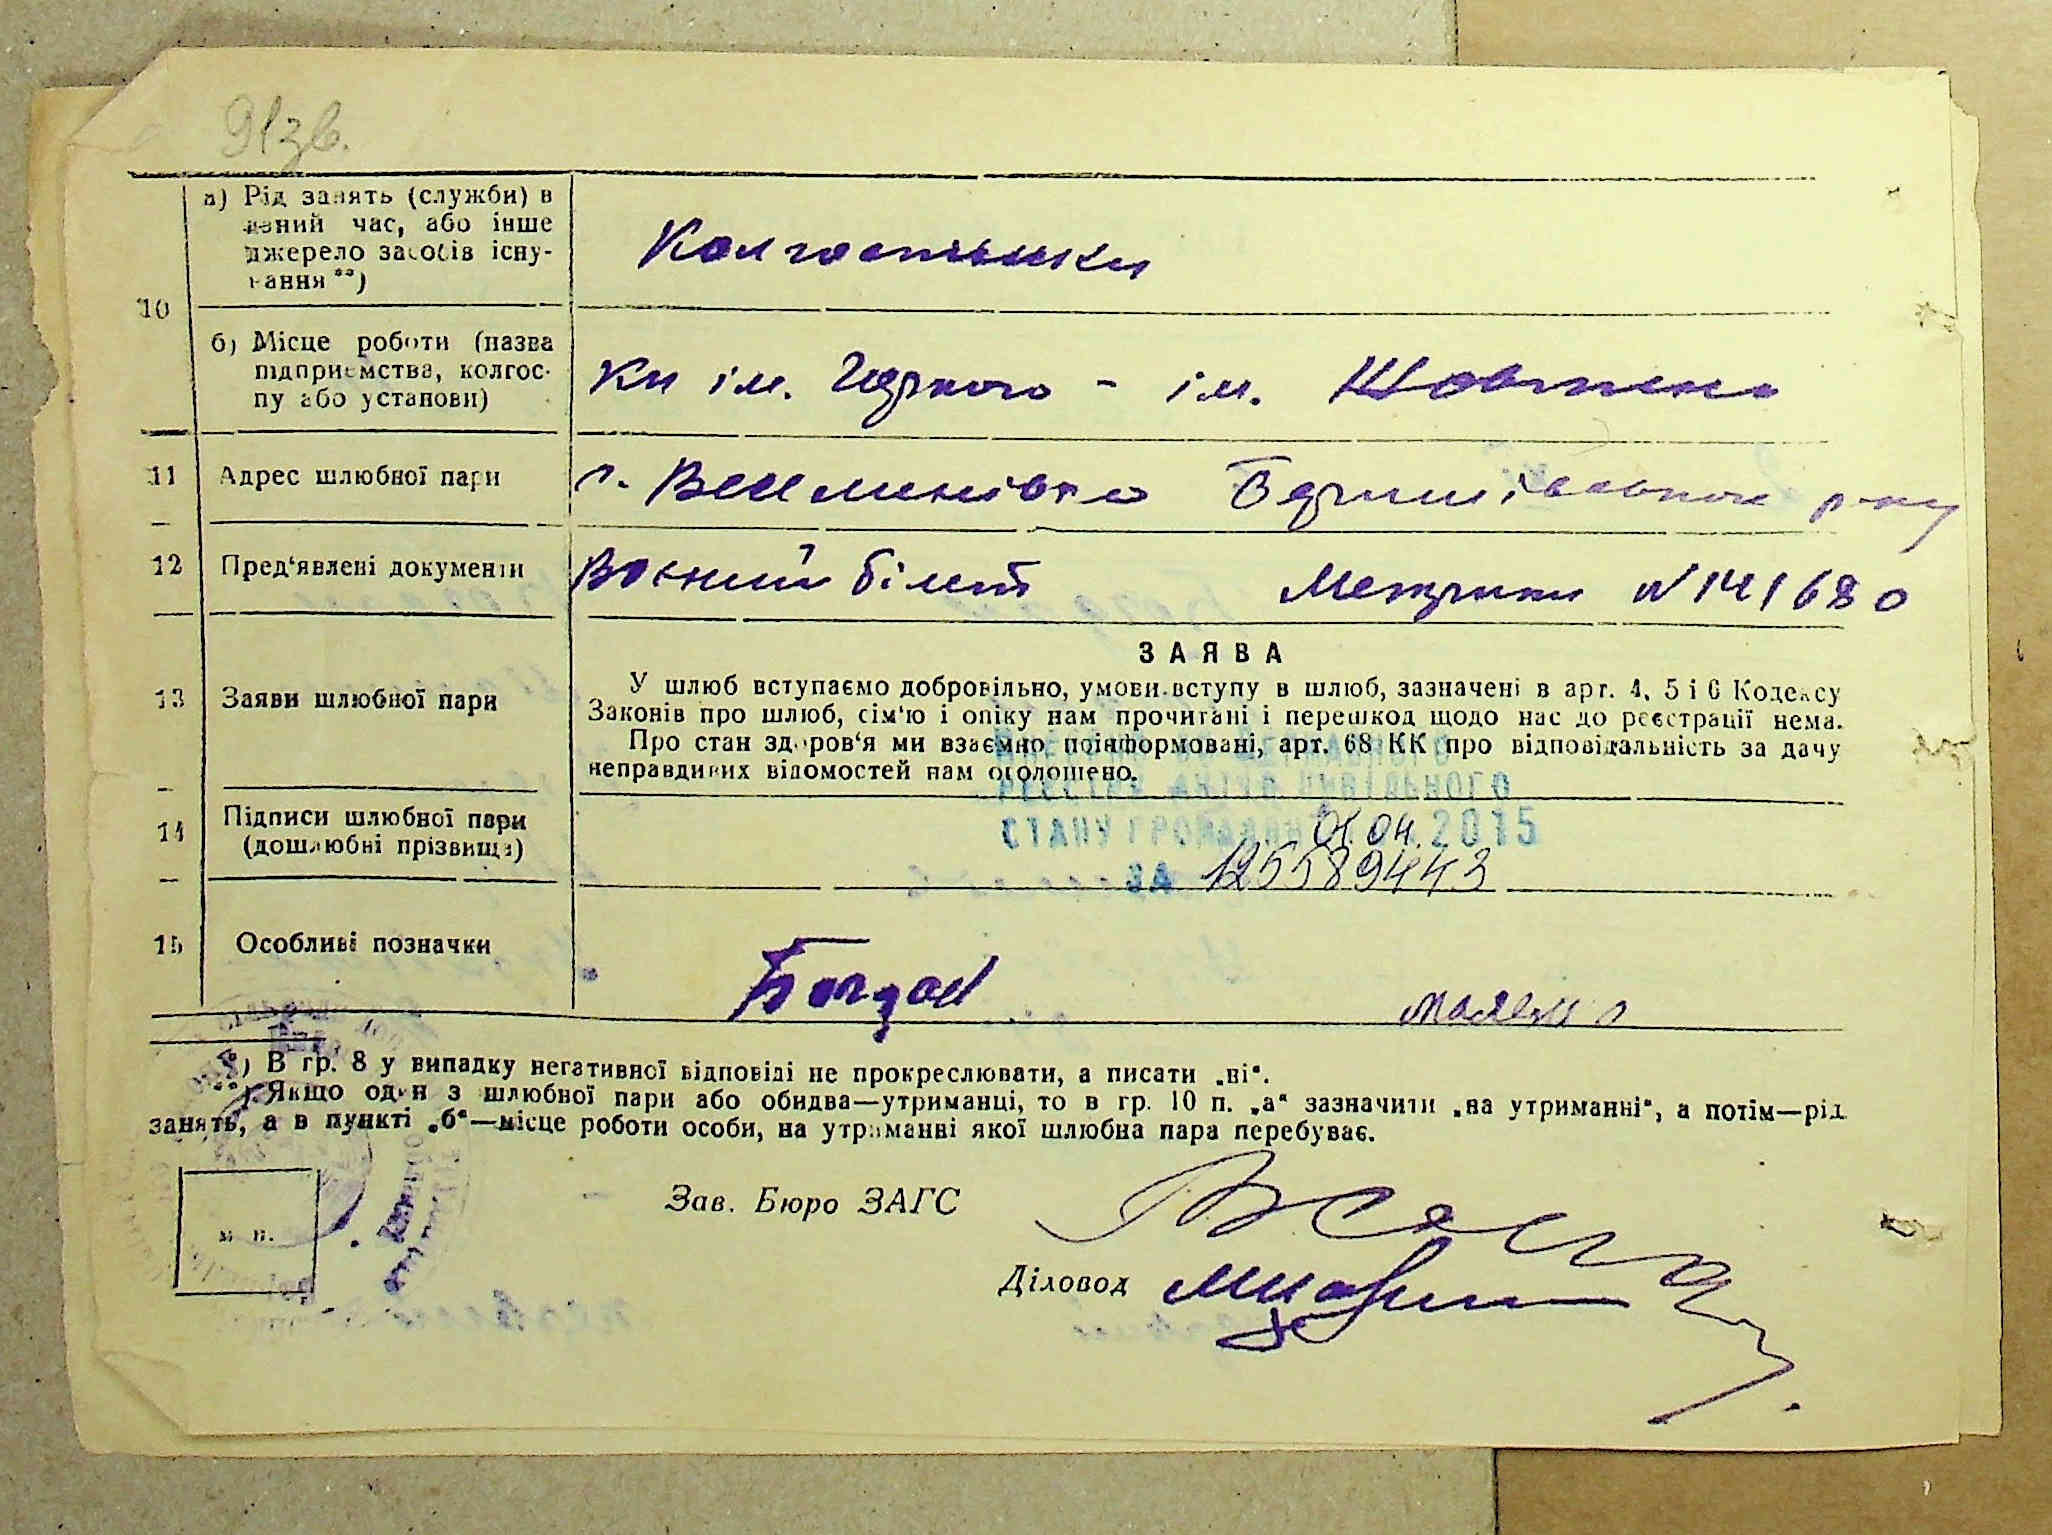 91зв.
10
а) Рід занять (служби) в
даний час, або інше
джерело засобів існу-
вання **)
Колгоспники
б) Місце роботи (назва
підприємства, колгос-
пу або установи)
ім. - ім.
11
Адрес шлюбної пари
с. р-ну
12
Пред'явлені документи
Воєний білет Метрики №141680
ЗАЯВА
13
Заяви шлюбної пари
У шлюб вступаємо добровільно, умови вступу в шлюб, зазначені в арт. 4, 5 і 6 Кодексу
Законів про шлюб, сім'ю і опіку нам прочитані і перешкод щодо нас до реєстрації нема.
Про стан здоров'я ми взаємно поінформовані, арт. 68 КК про відповідальність за дачу
неправдивих відомостей нам оголошено.
ДЕРЖАВНОГО
РЕЄСТРУ АКТІВ ЦИВІЛЬНОГО
СТАНУ ГРОМАДЯН 01.04.2015
ЗА 125589443
14
Підписи шлюбної пари
(дошлюбні прізвища)
15
Особливі позначки
Богдан
*) В гр. 8 у випадку негативної відповіді не прокреслювати, а писати „ні“.
**) Якщо один з шлюбної пари або обидва—утриманці, то в гр. 10 п. „а“ зазначити „на утриманні“, а потім—рід
занять, а в пункті „б“—місце роботи особи, на утриманні якої шлюбна пара перебуває.
м. п.
Зав. Бюро ЗАГС
Діловод